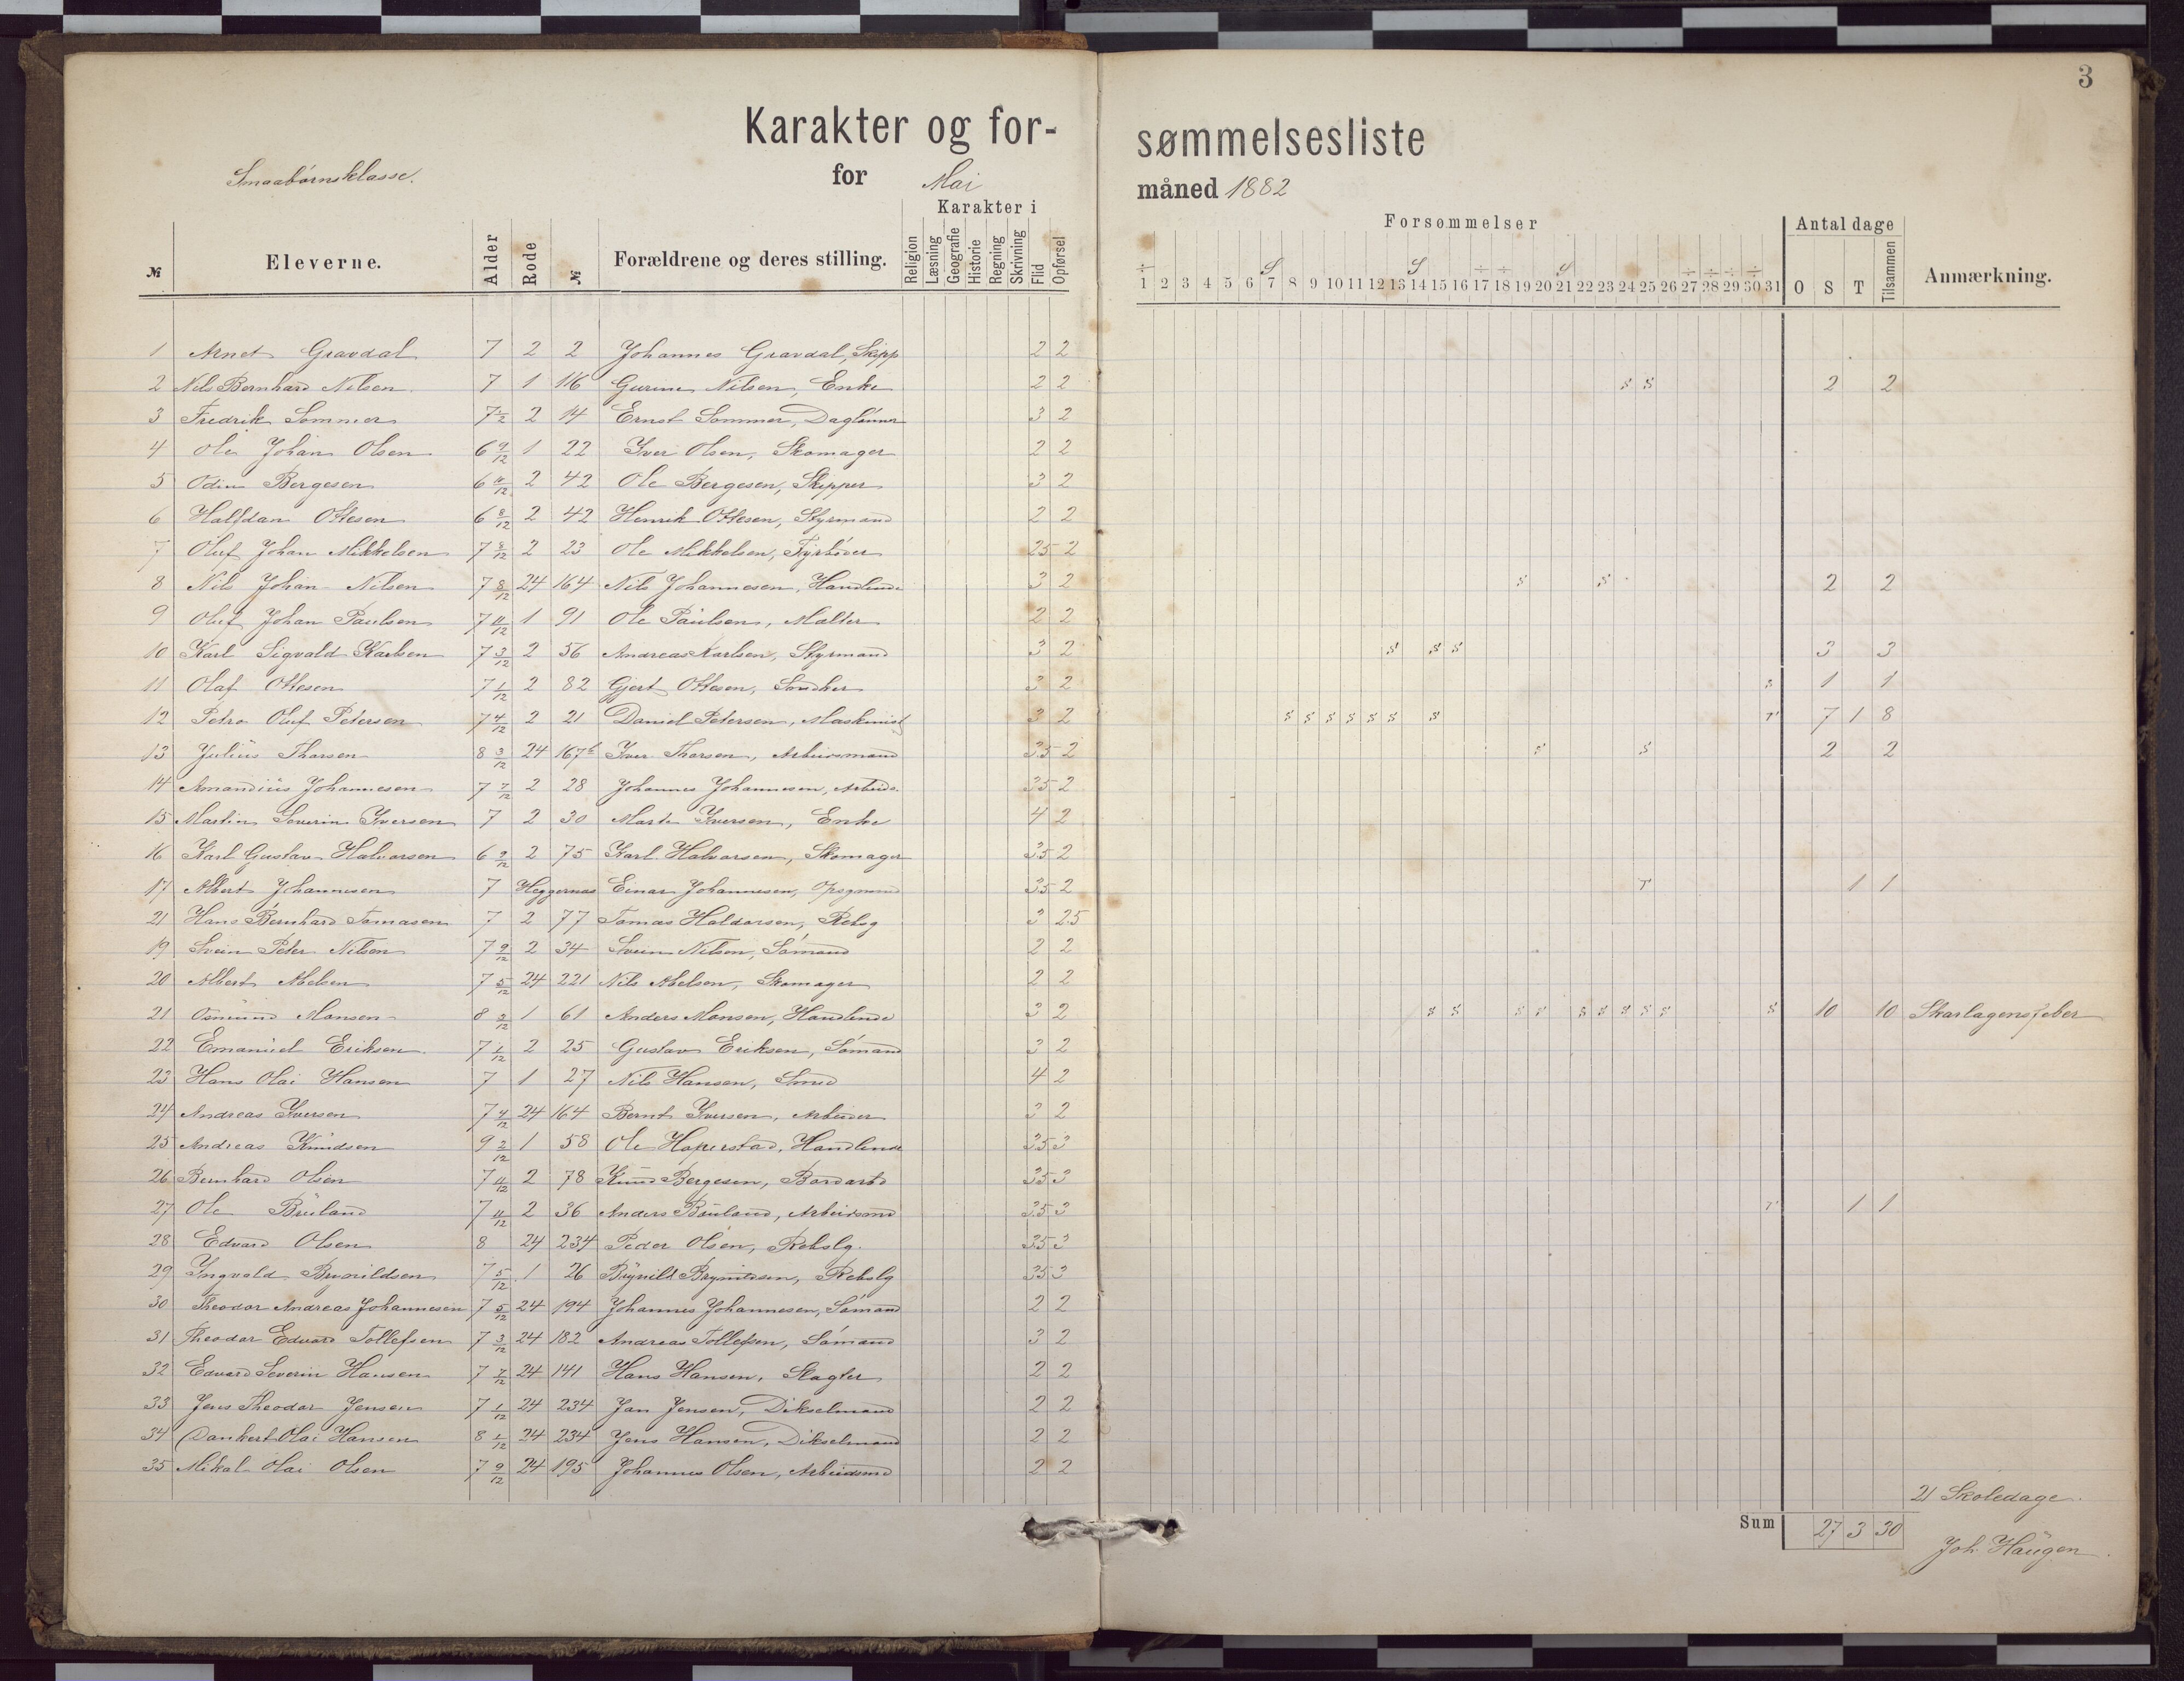 3
Karakter og for-sømmelsesliste
Smaabørnsklasse.
for Mai måned 1882
Karakter i
Forsømmelser
Antal dage
№ Eleverne. Alder Rode № Forældrene og deres stilling. Religion Læsning Geografie Historie Regning Skrivning Flid Opførsel
÷ S S ÷ ÷ S ÷ ÷ ÷ ÷
1 2 3 4 5 6 7 8 9 10 11 12 13 14 15 16 17 18 19 20 21 22 23 24 25 26 27 28 29 30 31 O S T Tilsammen Anmærkning.
1 Arnet Gravdal 7 2 2 Johannes Gravdal, Skipp 2 2
2 Nils Bernhard Nilsen 7 1 116 Gurine Nilsen, Enke 2 2 s s 2 2
3 Fredrik Sommer 7 1/2 2 14 Ernst Sommer, Daglønner 3 2
4 Ole Johan Olsen 6 9/12 1 22 Iver Olsen, Skomager 2 2
5 Odin Bergesen 6 11/12 2 42 Ole Bergesen, Skipper 3 2
6 Halfdan Ottesen 6 8/12 2 42 Henrik Ottesen, Styrmand 2 2
7 Oluf Johan Mikkelsen 7 8/12 2 23 Ole Mikkelsen, Fyrbøder 25 2
8 Nils Johan Nilsen 7 8/12 24 164 Nils Johannesen, Handlende 3 2 s s 2 2
9 Oluf Johan Paulsen 7 11/12 1 91 Ole Paulsen, Malter 2 2
10 Karl Sigvald Karlsen 7 3/12 2 56 Andreas Karlsen, Styrmand 3 2 s s s 3 3
11 Olaf Ottesen 7 1/12 2 82 Gjert Ottesen, Snedker 3 2 s 1 1
12 Petro Oluf Petersen 7 4/12 2 21 Daniel Petersen, Maskinist 3 2 s s s s s s s T 7 1 8
13 Julius Thorsen 8 3/12 24 167b Iver Thorsen, Arbeidsmand 3.5 2 s s 2 2
14 Amandius Johannesen 7 7/12 2 28 Johannes Johannesen, Arbeids. 35 2
15 Martin Severin Iversen 7 2 30 Marte Iversen, Enke 4 2
16 Karl Gustav Halvorsen 6 9/12 2 75 Karl Halvorsen, Skomager 3.5 2
17 Albert Johannesen 7 Heggernes Einar Johannesen, Opsynsmd 35 2 T 1 1
21 Hans Bernhard Tomasen 7 2 77 Tomas Haldorsen, Rebsg 3 2.5
19 Svein Peter Nilsen 7 9/12 2 34 Svein Nilsen, Sømand 2 2
20 Albert Abelsen 7 5/12 24 221 Nils Abelsen, Skomager 2 2
21 Osmund Monsen 8 2/12 1 61 Anders Monsen, Handlende 3 2 s s s s s s s s s s 10 10 Skarlagensfeber
22 Emanuel Eriksen 7 1/12 2 25 Gustav Eriksen, Sømand 3 2
23 Hans Olai Hansen 7 1 27 Nils Hansen, Smed 4 2
24 Andreas Iversen 7 4/12 24 164 Bernt Iversen, Arbeider 3 2
25 Andreas Knudsen 9 2/12 1 58 Ole Hoperstad, Handlende 35 3
26 Bernhard Olsen 7 11/12 2 78 Knud Bergesen, Bordarbd 35 3
27 Ole Buland 7 11/12 2 36 Anders Buland, Arbeidsmd 3.5 3 T 1 1
28 Edvard Olsen 8 24 234 Peder Olsen, Rebslg. 3.5 3
29 Ingvald Brynildsen 7 5/12 1 26 Brynild Brynildsen, Rebslg 35 3
30 Theodor Andreas Johannesen 7 5/12 24 194 Johannes Johannesen, Sømand 2 2
31 Theodor Edvard Tollefsen 7 3/12 24 182 Andreas Tollefsen, Sømand 3 2
32 Edvard Severin Hansen 7 7/12 24 141 Hans Hansen, Slagter 2 2
33 Jens Theodor Jensen 7 1/12 24 234 Jan Jensen, Dikselmand 2 2
34 Dankert Olai Hansen 8 1/12 24 234 Jens Hansen, Dikselmand 2 2
35 Mikal Olai Olsen 7 9/12 24 195 Johannes Olsen, Arbeidsmd 2 2
21 Skoledage.
Sum 27 3 30
Joh. Haugen.